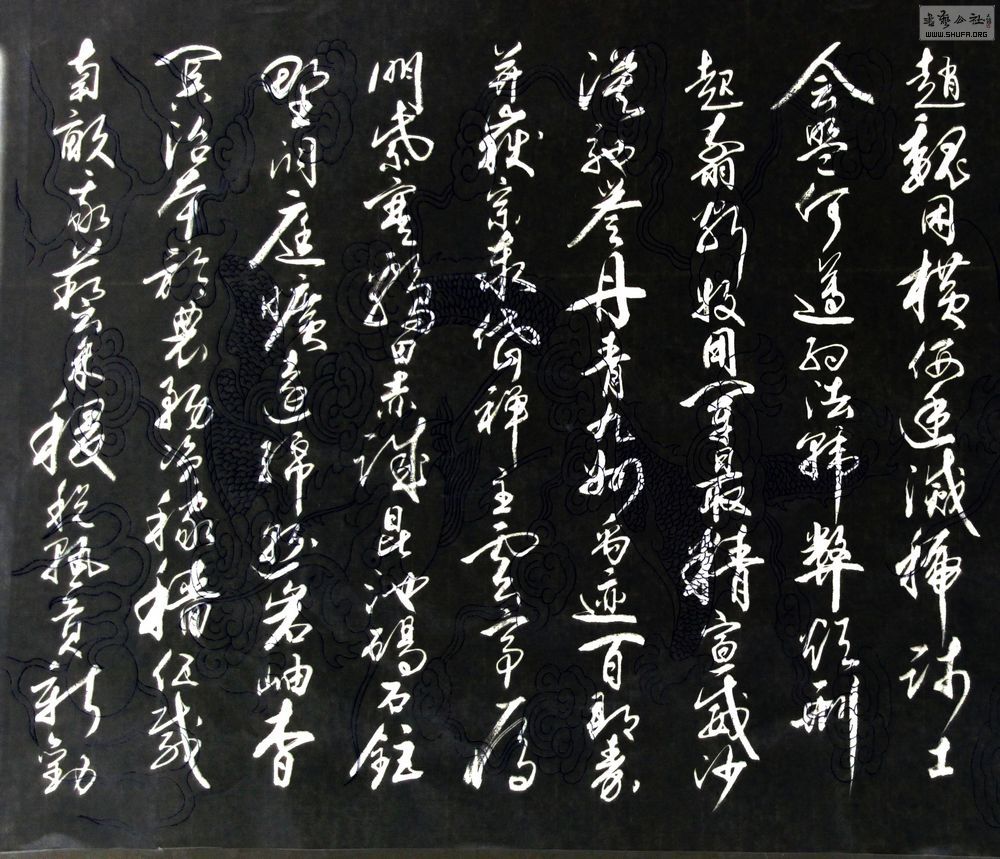 趙魏困橫假途滅虢踐土
会盟何遵約法韓弊煩刑
起翦頗牧用軍最精宣威沙
漠馳誉丹青九州禹迹百郡秦
并嶽宗泰岱禅主雲亭雁
門紫塞鷄田赤城昆池碣石鉅
野洞庭曠遠綿邈岩岫杳
冥治本於農務兹稼穡俶載
南畝我藝黍稷税熟貢新勸
书艺公社
WWW.SHUFA.ORG